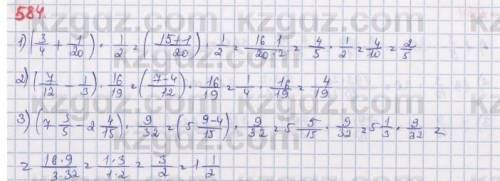 584.
1) (3/4 + 1/20) · 1/2 = (15+1/20) · 1/2 = 16·1/20·2 = 4/5 · 1/2 = 4/10 = 2/5
2) (7/12 - 1/3) · 16/19 = (7-4/12) · 16/19 = 1/4 · 16/19 = 4/19
3) (7 3/5 - 2 4/15) · 9/32 = (5 9-4/15) · 9/32 = 5 5/15 · 9/32 = 5 1/3 · 9/32 =
= 16·9/3·32 = 1·3/1·2 = 3/2 = 1 1/2